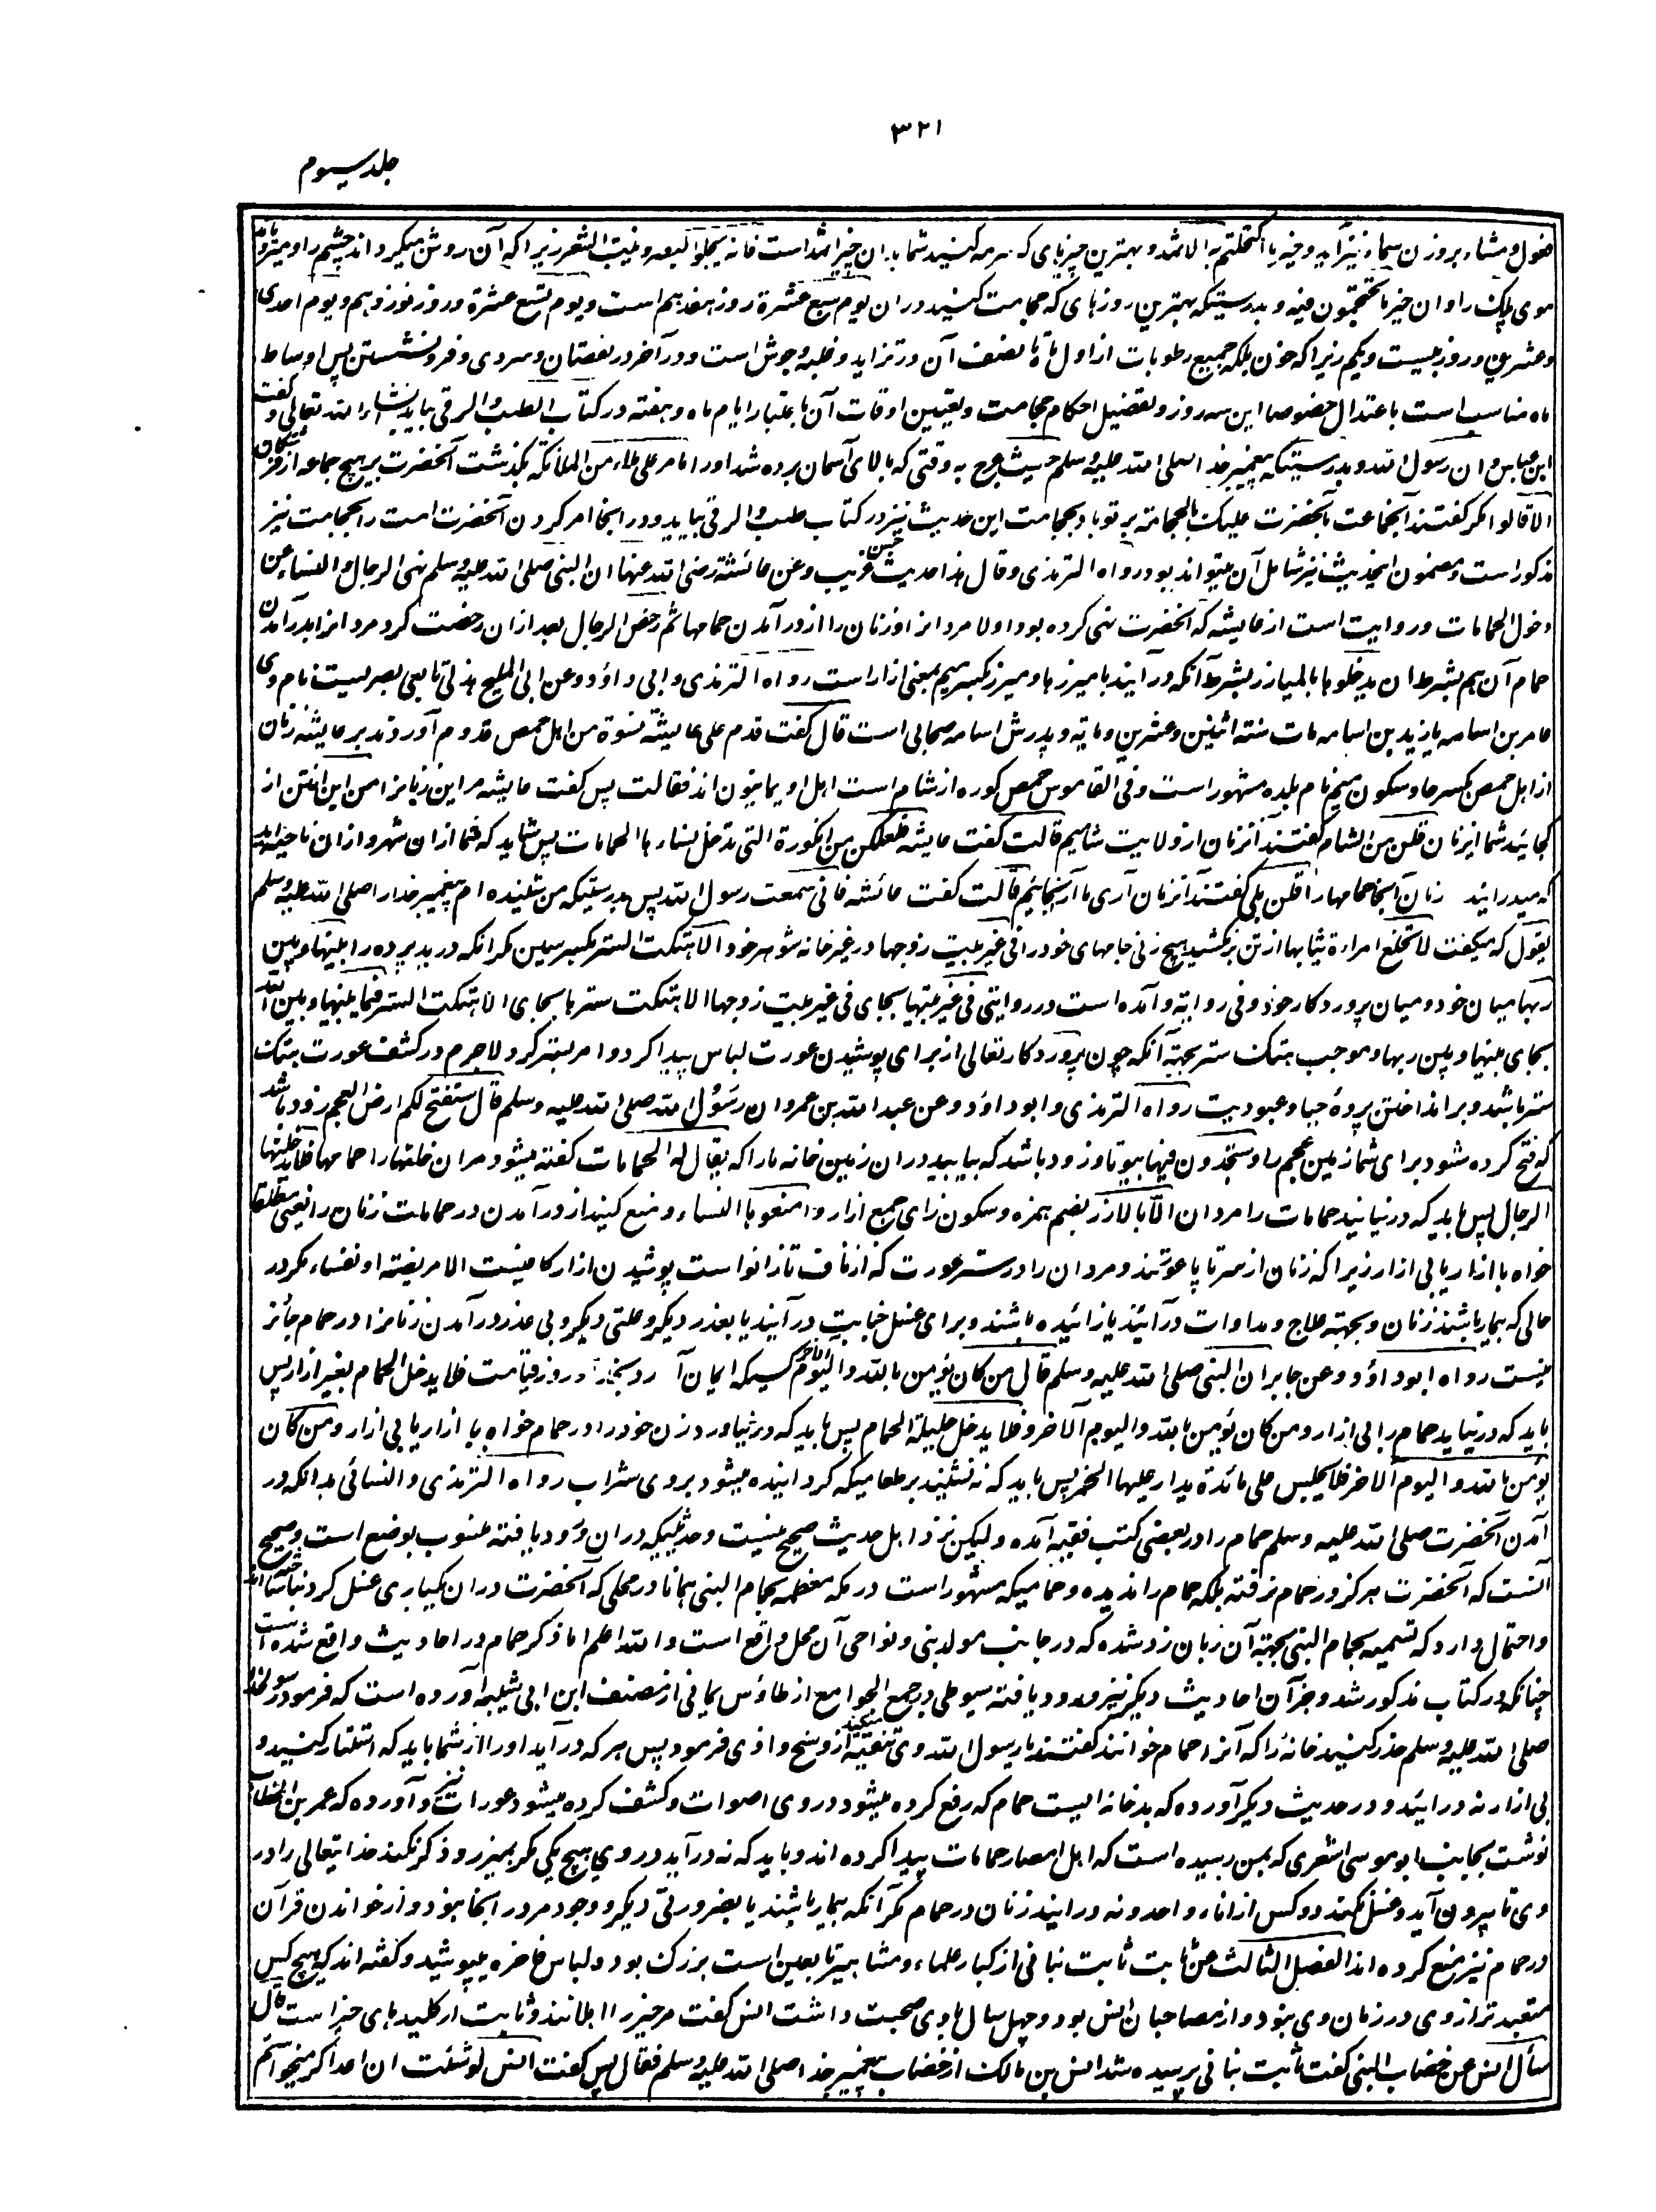 ۳۲۱
جلد سیوم
فعول و مشاء بر وزن سماء نیز آید و خیر ما اکتحلتم به الاثمد و بهترین چیزهای که سرمه کنید شما بدان چیز اثمد است فانه یجلو البصر و ینبت الشعر زیرا که آن روشن میگرداند چشم را و میرویاند
موی پلک را و ان خیر ما تحتجمون فیه و بدرستیکه بهترین روزهای که حجامت کنید دران یوم سبع عشرة روز هفدهم است و یوم تسع عشرة و روز نوزدهم و یوم احدی
و عشرین و روز بیست و یکم زیرا که خون بلکه جمیع رطوبات از اول ماه تا نصف آن در تزاید و غلبه و جوش است و در آخر در نقصان و سردی و فرو نشستن پس اوساط
ماه مناسب است باعتدال خصوصا این سه روز و تفصیل احکام حجامت و تعیین اوقات آن باعتبار ایام ماه و هفته در کتاب الطب و الرقی بیاید انشاء الله تعالی و گفت
ابن عباس و ان رسول الله و بدرستیکه پیغمبر خدا صلی الله علیه وسلم حیث عرج به وقتی که بالای آسمان برده شد اورا مامر علی ملاء من الملائکة نگذشت آنحضرت بر هیچ جماعه از فرشتگان
الا قالوا مگر گفتند آنجماعت بآنحضرت علیک بالحجامة بر تو باد بحجامت این حدیث نیز در کتاب طب و الرقی بیاید و در انجا امر کردن آنحضرت امت را بحجامت نیز
مذکور است و مضمون اینحدیث نیز شامل آن میتواند بود رواه الترمذی و قال هذا حدیث حسن غریب و عن عائشة رضی الله عنها ان النبی صلی الله علیه وسلم نهی الرجال و النساء عن
دخول الحمامات و روایت است از عایشه که آنحضرت نهی کرده بود اولا مردانرا و زنان را از در آمدن حمامها ثم رخص للرجال بعد ازان رخصت کرد مردانرا بدر آمدن
حمام آن هم بشرط ان یدخلوها بالمیازر بشرط آنکه در آیند با میزرها و میزر بکسر میم بمعنی ازار است رواه الترمذی و ابی داؤد و عن ابی الملیح هذلی تابعی بصریست نام وی
عامر بن اسامه یا زید بن اسامه مات سنه اثنین و عشرین و مایة و پدرش اسامه صحابی است قال گفت قدم علی عایشة نسوة من اهل حمص قدوم آوردند بر عایشه زنان
از اهل حمص بکسر حا و سکون میم نام بلده مشهور است و فی القاموس حمص کوره از شام است اهل او یمانیون اند فقالت پس گفت عایشه مر این زنانرا من این انتن از
کجائید شما ای زنان قلن من الشام گفتند آنزنان از ولایت شامیم قالت گفت عایشه فلعلکن من الکورة التی تدخل نساءها الحمامات پس شاید که شما ازان شهر و ازان ناحیه اید
که میدرایند زنان آنجا حمامها را قلن بلی گفتند آنزنان آری ما از آنجائیم قالت گفت عائشه فانی سمعت رسول الله پس بدرستیکه من شنیده ام پیغمبر خدا را صلی الله علیه وسلم
یقول که میگفت لا تخلع امراءة ثیابها از تن نرکشید هیچ زنی جامهای خود را فی غیر بیت زوجها در غیر خانه شوهر خود الا هتکت الستر بکسر سین مگر آنکه درید پرده را بینها و بین
ربها میان خود و میان پروردگار خود و فی روایة و آمده است در روایتی فی غیر بیتها بجای فی غیر بیت زوجها الا هتکت سترها بجای الا هتکت الستر فیما بینها و بین الله
بجای بینها و بین ربها و موجب هتک ستر بجهة آنکه چون پروردگار تعالی از برای پوشیدن عورت لباس پیدا کرد و امر بستر کرد لاجرم در کشف عورت هتک
ستر باشد و برانداختن پردهٔ حیا و عبودیت رواه الترمذی و ابو داؤد و عن عبد الله بن عمرو ان رسول الله صلی الله علیه وسلم قال ستفتح لکم ارض العجم زود باشد
که فتح کرده شود برای شما زمین عجم را و ستجدون فیها بیوتا و زود باشد که بیابید دران زمین خانه ها را که یقال لها الحمامات گفته میشود مران خانها را حمامها فلا یدخلنها
الرجال پس باید که در نیایند حمامات را مردان الا بالازر بضم همزه و سکون زای جمع ازار و امنعوها النساء و منع کنید از در آمدن در حمامات زنان را یعنی مطلقا
خواه با ازار یا بی ازار زیرا که زنان از سر تا پا عورتند و مردان را در ستر عورت که از ناف تا زانو است پوشیدن ازار کافیست الا مریضة او نفساء مگر در
حالی که بیمار باشند زنان و بجهة علاج و مداوات در آیند یا زائیده باشند و برای غسل جنابت در آیند یا بعذر دیگر و علتی دیگر و بی عذر در آمدن زنانرا در حمام جائز
نیست رواه ابو داؤد و عن جابر ان النبی صلی الله علیه وسلم قال من کان یؤمن بالله و الیوم الآخر کسیکه ایمان آرد بخدا و روز قیامت فلا یدخل الحمام بغیر ازار پس
باید که در نیاید حمام را بی ازار و من کان یؤمن بالله و الیوم الآخر فلا یدخل حلیلته الحمام پس باید که در نیاورد زن خود را در حمام خواه با ازار یا بی ازار و من کان
یؤمن بالله و الیوم الاخر فلا یجلس علی مائدة یدار علیها الخمر پس باید که نه نشیند بر طعامیکه گردانیده میشود بروی شراب رواه الترمذی و النسائی بدانکه در
آمدن آنحضرت صلی الله علیه وسلم حمام را در بعضی کتب فقهیه آمده و لیکن نزد اهل حدیث صحیح نیست و حدیثیکه دران ورود یافته منسوب بوضع است و صحیح
آنست که آنحضرت هرگز در حمام نرفته بلکه حمام را ندیده و حمامیکه مشهور است در مکه معظمه بحمام النبی همانا در محلی که آنحضرت دران یکباری غسل کرد بنا ساخته اند
و احتمال دارد که تسمیه بحمام النبی بجهة آن زبان زد شده که در جانب مولد نبی و نواحی آن محل واقع است والله اعلم اما ذکر حمام در احادیث واقع شده است
چنانکه در کتاب مذکور شد و جز آن احادیث دیگر نیز ورود یافته سیوطی در جمع الجوامع از طاؤس یمانی از مصنف ابن ابی شیبه آورده است که فرمود رسول خدا
صلی الله علیه وسلم حذر کنید خانهٔ را که آنرا حمام خوانند گفتند یا رسول الله وی تنقیه میکند از وسخ و اذی فرمود پس هر که در آید اورا از شما باید که استتار کنید و
بی ازار نه درائید و در حدیث دیگر آورده که بد خانه ایست حمام که رفع کرده میشود در وی اصوات و کشف کرده میشود عورات و نیز آورده که عمر بن الخطاب
نوشت بجانب ابو موسی اشعری که بمن رسیده است که اهل امصار حمامات پیدا کرده اند و باید که نه درآید در وی هیچ یکی مگر بمیزر و ذکر نکند خدایتعالی را در
وی تا بیرون آید و غسل نکند دو کس از اناء واحد و نه درایند زنان در حمام مگر آنکه بیمار باشند یا بضرورتی دیگر و وجود مرد در انجا نبود و از خواندن قرآن
در حمام نیز منع کرده اند الفصل الثالث عن ثابت ثابت بنانی از کبار علماء و مشاهیر تابعین است بزرگ بود و لباس فاخره میپوشید و گفته اند که هیچ کس
متعبد تر از وی در زمان وی نبود و از مصاحبان انس بود و چهل سال با وی صحبت داشت انس گفت مر خیر را اهلانند و ثابت از کلیدهای خیر است قال
سأل انس عن خضاب النبی گفت ثابت بنانی پرسیده شد انس بن مالک از خضاب پیغمبر خدا صلی الله علیه وسلم فقال پس گفت انس لو شئت ان اعد اگر میخواستم